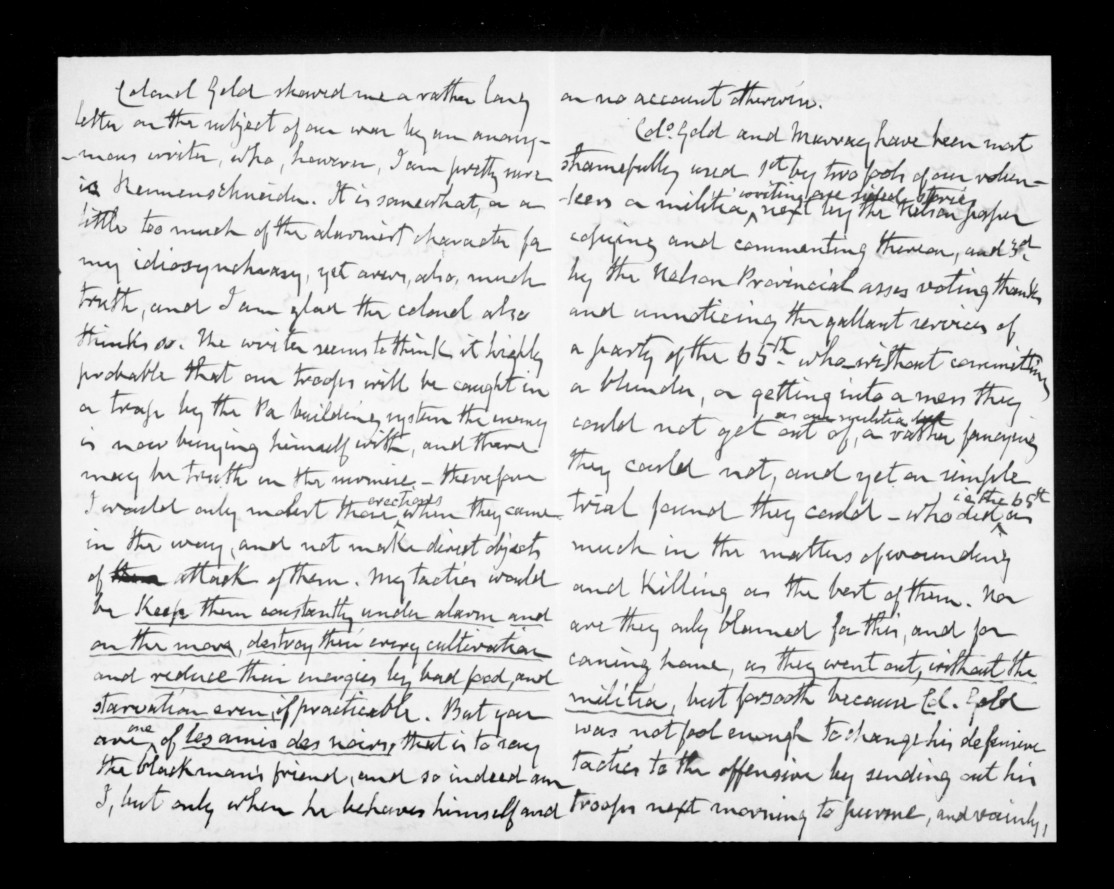 Colonel Gold showed me a rather long
letter on the subject of our war by an anony-
-mous writer, who, however, I am pretty sure
is Hemmenschneider. It is somewhat, or a
little too much of the alarmist character for
my idiosynchrasy, yet avers, also, much
truth, and I am glad the colonel also
thinks so. The writer seems to think it highly
probable that our troops will be caught in
a trap by the Pa building system the enemy
is now busying himself with, and there
may be truth in the surmise – therefore
I would only molest those erections when they came
in the way, and not make direct objects
of them attack of them. My tactics would
be Keep them constantly under alarm and
on the move, destroy their every cultivation
and reduce their energies by bad food, and
starvation even, if practicable. But you
are one of les amis des noirs, that is to say
the blackman's friend, and so indeed am
I, but only when he behaves himself and
on no account otherwise.
Cols. Gold and Murray have been most
shamefully used 1st by two fools of our volun-
-teers or militia writing stories, next by the Nelson paper
copying and commenting thereon, and 3rd.
by the Nelson Provincial asses voting thanks
and unnoticing the gallant services of
a party of the 65th. who without committing
a blunder, or getting into a mess they
could not get out of, as our militia or rather fancying
they could not, and yet on simple
trial found they could – who i.e. the 65th did as
much in the matters of wounding
and killing as the best of them. Nor
are they only blamed for this, and for
coming home, as they went out, without the
militia, but forsooth because Col. Gold
was not fool enough to change his defensive
tactics to the offensive by sending out his
troops next morning to pursue, and vainly,